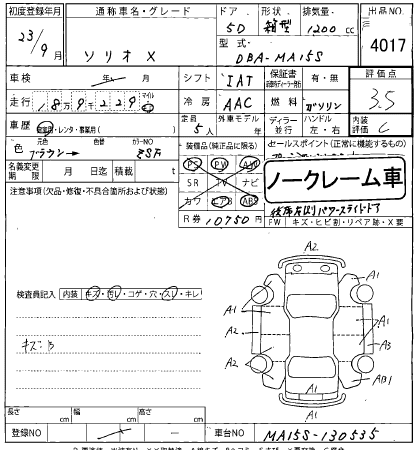 初度登録年月 通称車名・グレード ドア 形状 排気量 出品NO
23/9月 ソリオ X 5D 箱型 1200cc 4017
型式 DBA-MA15S
車検 年 月 シフト IAT 保証書 有・無 評価点
走行 マイル 冷房 AAC 燃料 ガソリン 3.5
車歴 自家用・レンタ・事業用( ) 定員 5人 外車モデル 年 ディーラー 並行 ハンドル 左・右 内装評価 C
色 元色 ブラウン→ 色替 カラーNO ZSA 装備品(純正品に限る) セールスポイント(正常に機能するもの)
名義変更期限 月 日迄 積載 t PS PW AW
注意事項(欠品・修復・不具合箇所および現状) SR TV ナビ ノークレーム車
カワ エアB ABS
R券 10750円 後席左右パワースライドドア
FW キズ・ヒビ割・リペア跡・X要
検査員記入 内装 キズ・汚レ・コゲ・穴・スレ・キレ
キズ:
A2
A1 A1
A1 A1
A2 A3
A2 AB1
A1
長さ cm 幅 cm 高さ cm
登録NO 車台NO MA15S-130535